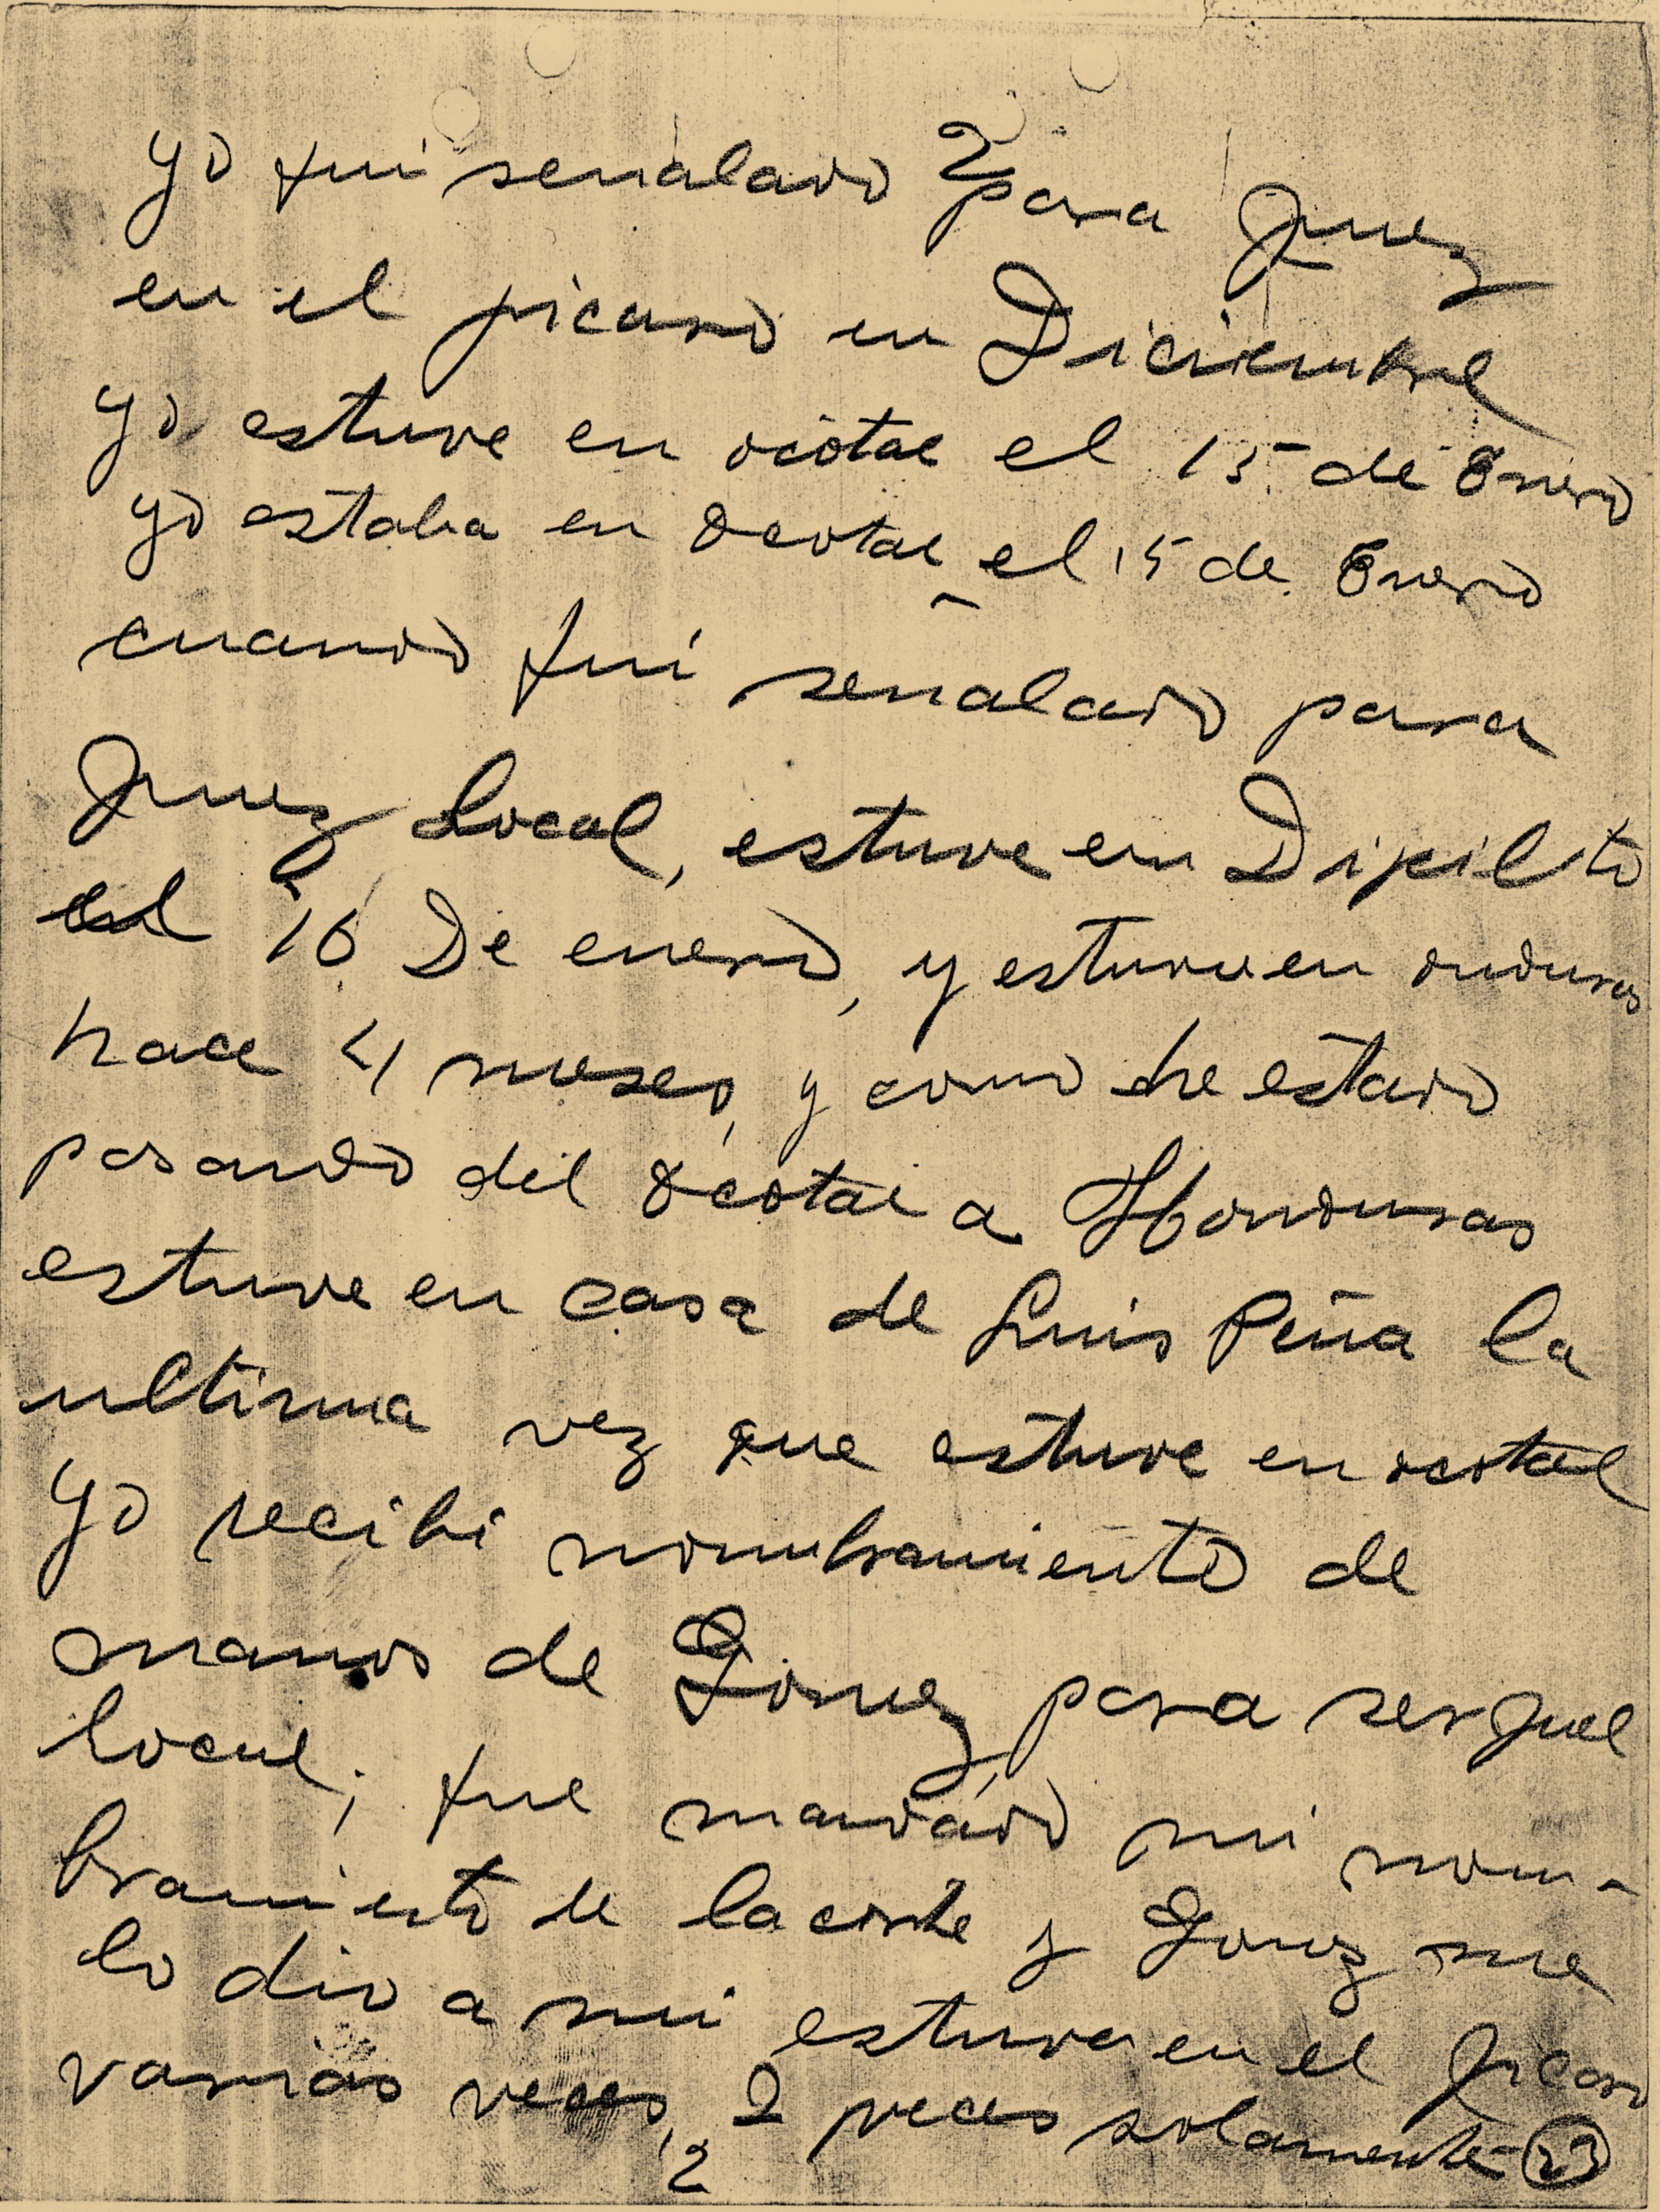 2
Yo fui senalado para Juez
en el jicaro en Diciembre
yo estuve en ocotal el 15 de Enero
yo estaba en Ocotal el 15 de Enero
cuando fui senalado para
Juez Local, estuve en Dipilto
el 16 De enero, y estuve en onduras
hace 4 meses, y como he estado
pasando del Ocotal a Honduras
estuve en casa de Luis Peña la
ultima vez que estuve en ocotal
Yo recibi nombramiento de
manos de Gomez para ser Juel
local; fue mandado mi nom-
bramiento de la corte y Gomez me
lo dio a mi estuve en el Jicaro
varias veces, 2 veces solamente 23
2